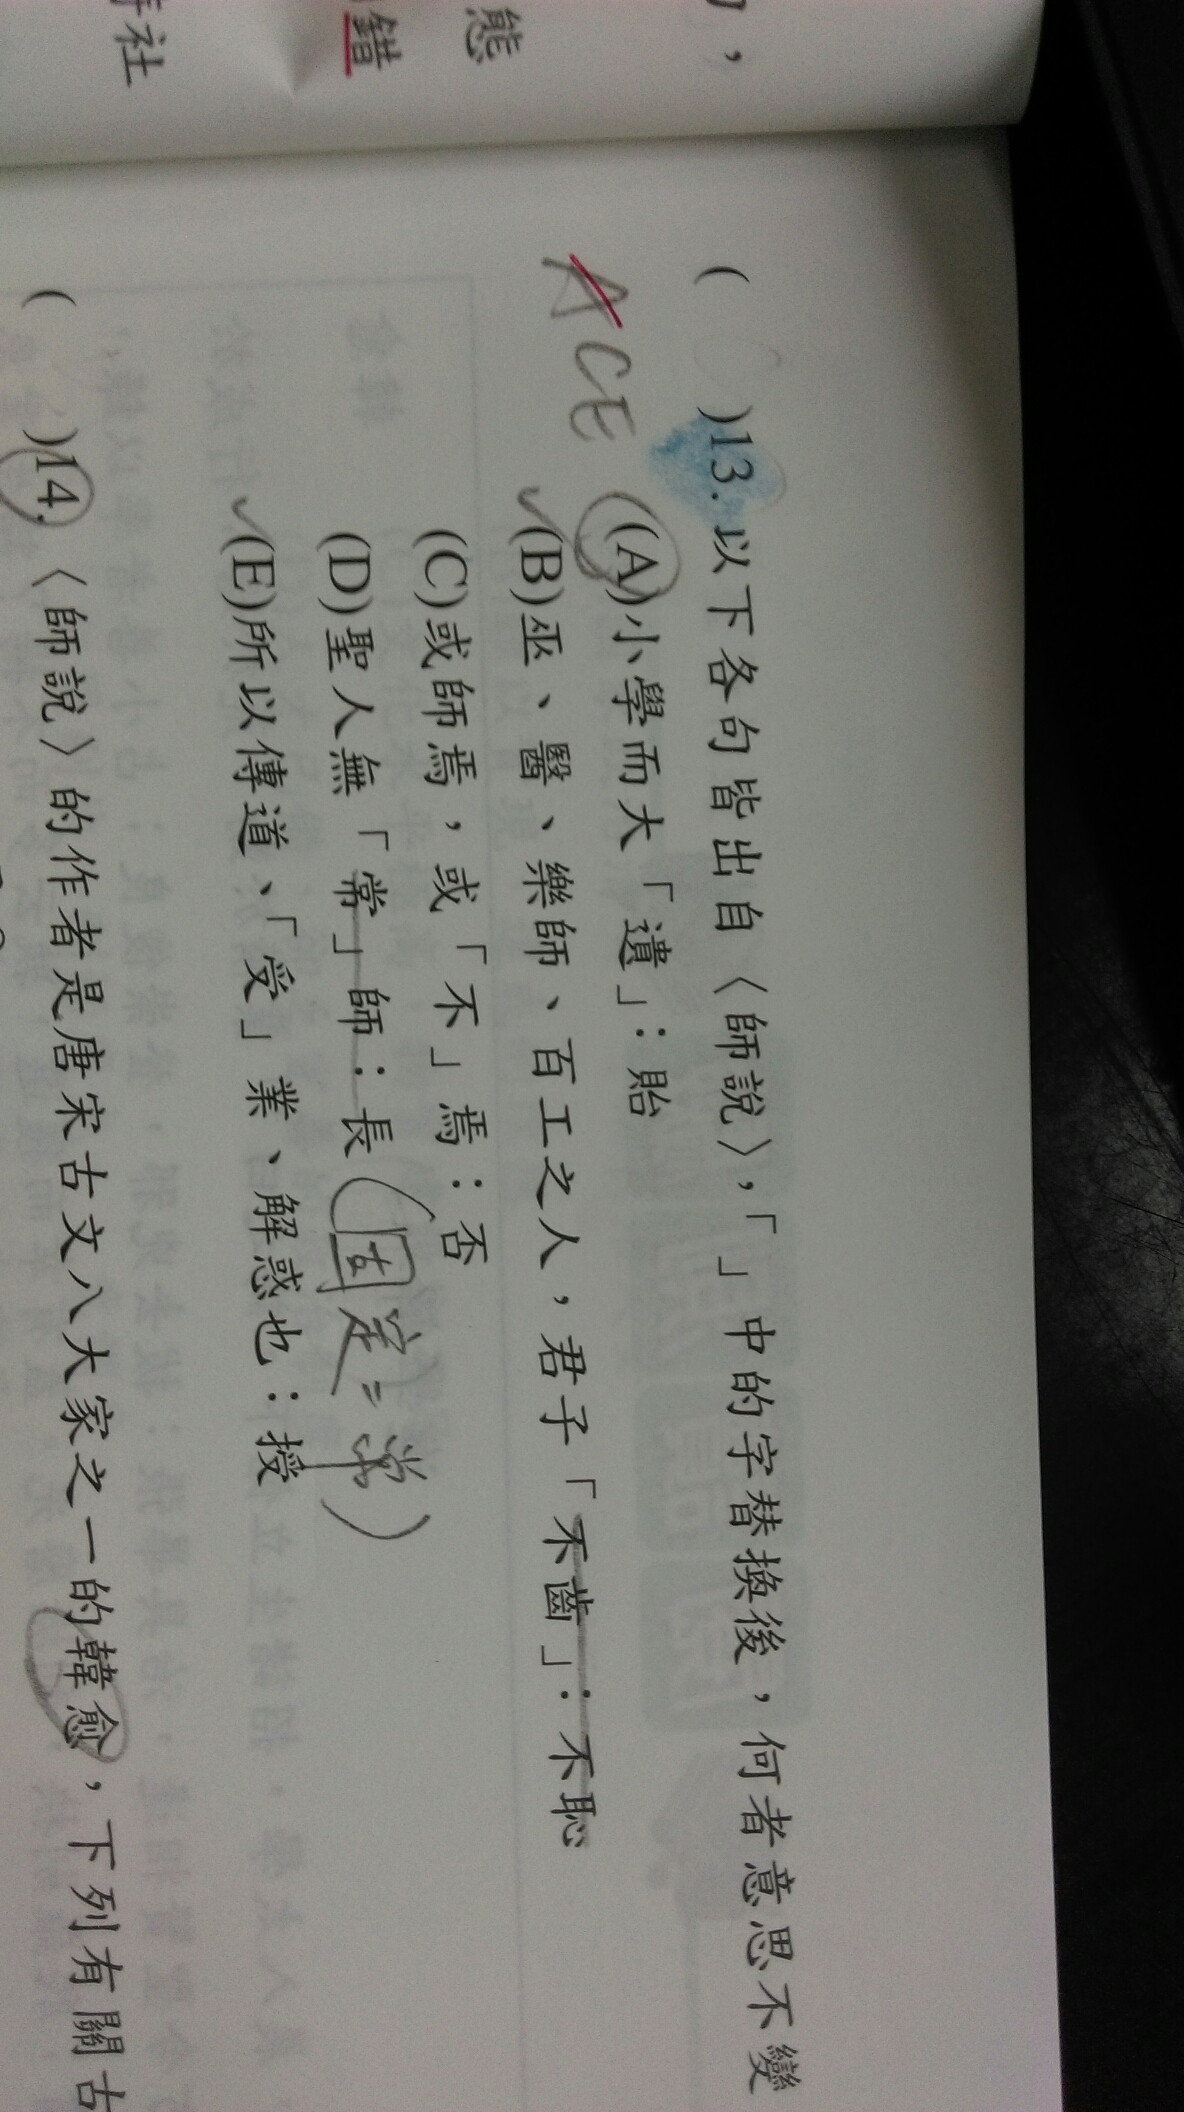 ，
態
錯
社
( )13.以下各句皆出自〈師說〉，「」中的字替換後，何者意思不變
ACE
(A)小學而大「遺」：貽
(B)巫、醫、樂師、百工之人，君子「不齒」：不恥
(C)或師焉，或「不」焉：否
(D)聖人無「常」師：長(固定=常)
(E)所以傳道、「受」業、解惑也：授
( )14.〈師說〉的作者是唐宋古文八大家之一的韓愈，下列有關古